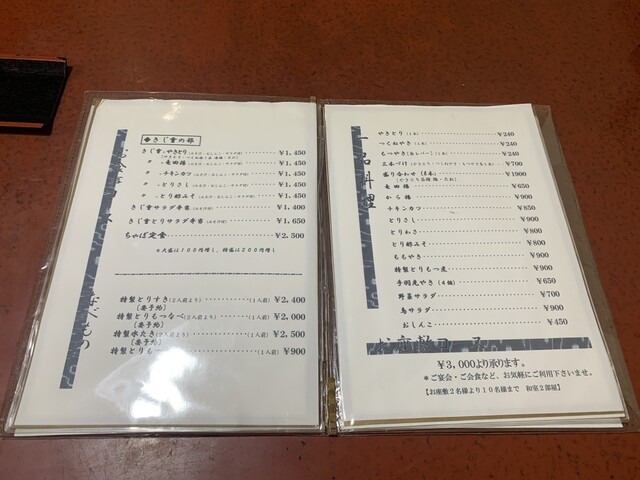 ◆きじ重の部
きじ重・やきとり ¥1,450
〃 ・竜田揚 ¥1,450
〃 ・チキンカツ ¥1,450
〃 ・とりさし ¥1,450
〃 ・とり酢みそ ¥1,450
きじ重サラダ弁当 ¥1,400
きじ重とりサラダ弁当 ¥1,650
ちゃぼ定食 ¥2,500
※大盛は100円増し、特盛は200円増し
なべもの
特製とりすき(2人前より) (1人前) ¥2,400
[要予約]
特製とりもつなべ(2人前より) (1人前) ¥2,000
[要予約]
特製水たき(2人前より) (1人前) ¥2,500
[要予約]
特製とりもつ (1人前) ¥900
一品料理
やきとり(1本) ¥240
つくねやき(1本) ¥240
もつやき ¥240
三本づけ ¥700
盛り合わせ(8本) ¥1900
竜田揚 ¥650
から揚 ¥900
チキンカツ ¥850
とりさし ¥900
とりわさ ¥800
とり酢みそ ¥800
ももやき ¥900
特製とりもつ煮 ¥900
手羽先やき(4個) ¥650
野菜サラダ ¥700
鳥サラダ ¥900
おしんこ ¥450
お座敷コース
¥3,000より承ります。
*ご宴会・ご会食など、お気軽にご利用下さいませ。
【お座敷2名様より10名様まで 和室2部屋】